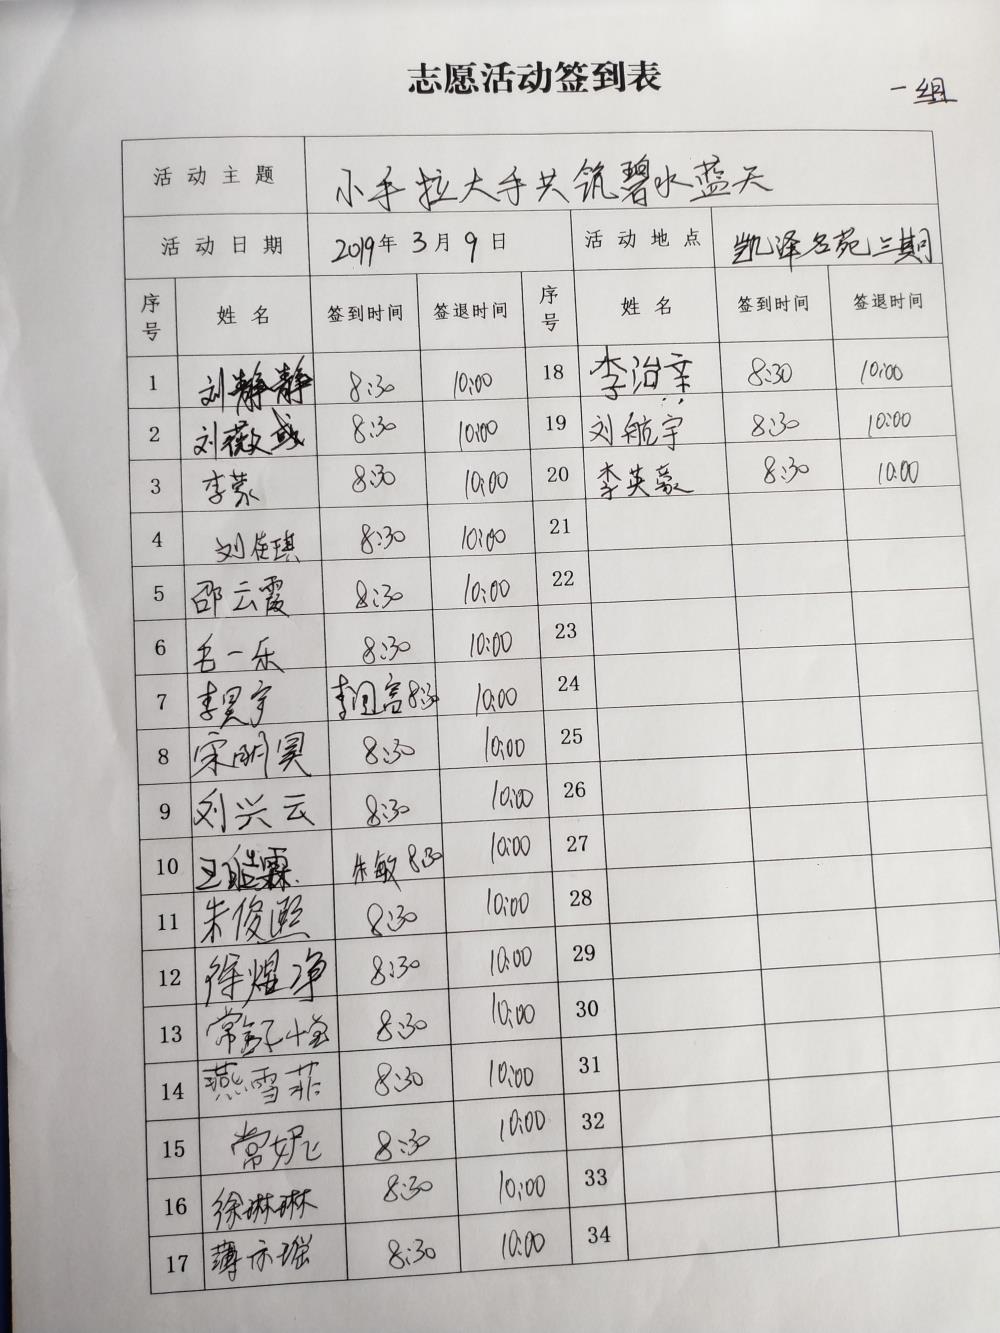 志愿活动签到表
一组
活动主题 小手拉大手共筑碧水蓝天
活动日期 2019年3月9日 活动地点 凯泽名苑三期
序号 姓名 签到时间 签退时间 序号 姓名 签到时间 签退时间
1 刘静静 8:30 10:00 18 李治亲 8:30 10:00
2 刘薇 8:30 10:00 19 刘航宇 8:30 10:00
3 李蒙 8:30 10:00 20 李英豪 8:30 10:00
4 刘佳琪 8:30 10:00 21
5 邵云霞 8:30 10:00 22
6 一乐 8:30 10:00 23
7 李昊宇 李国富 8:30 10:00 24
8 宋明昊 8:30 10:00 25
9 刘兴云 8:30 10:00 26
10 王 霖 朱敏 8:30 10:00 27
11 朱俊熙 8:30 10:00 28
12 徐煜净 8:30 10:00 29
13 常 8:30 10:00 30
14 燕雪菲 8:30 10:00 31
15 常妮 8:30 10:00 32
16 徐琳琳 8:30 10:00 33
17 薄亦瑶 8:30 10:00 34